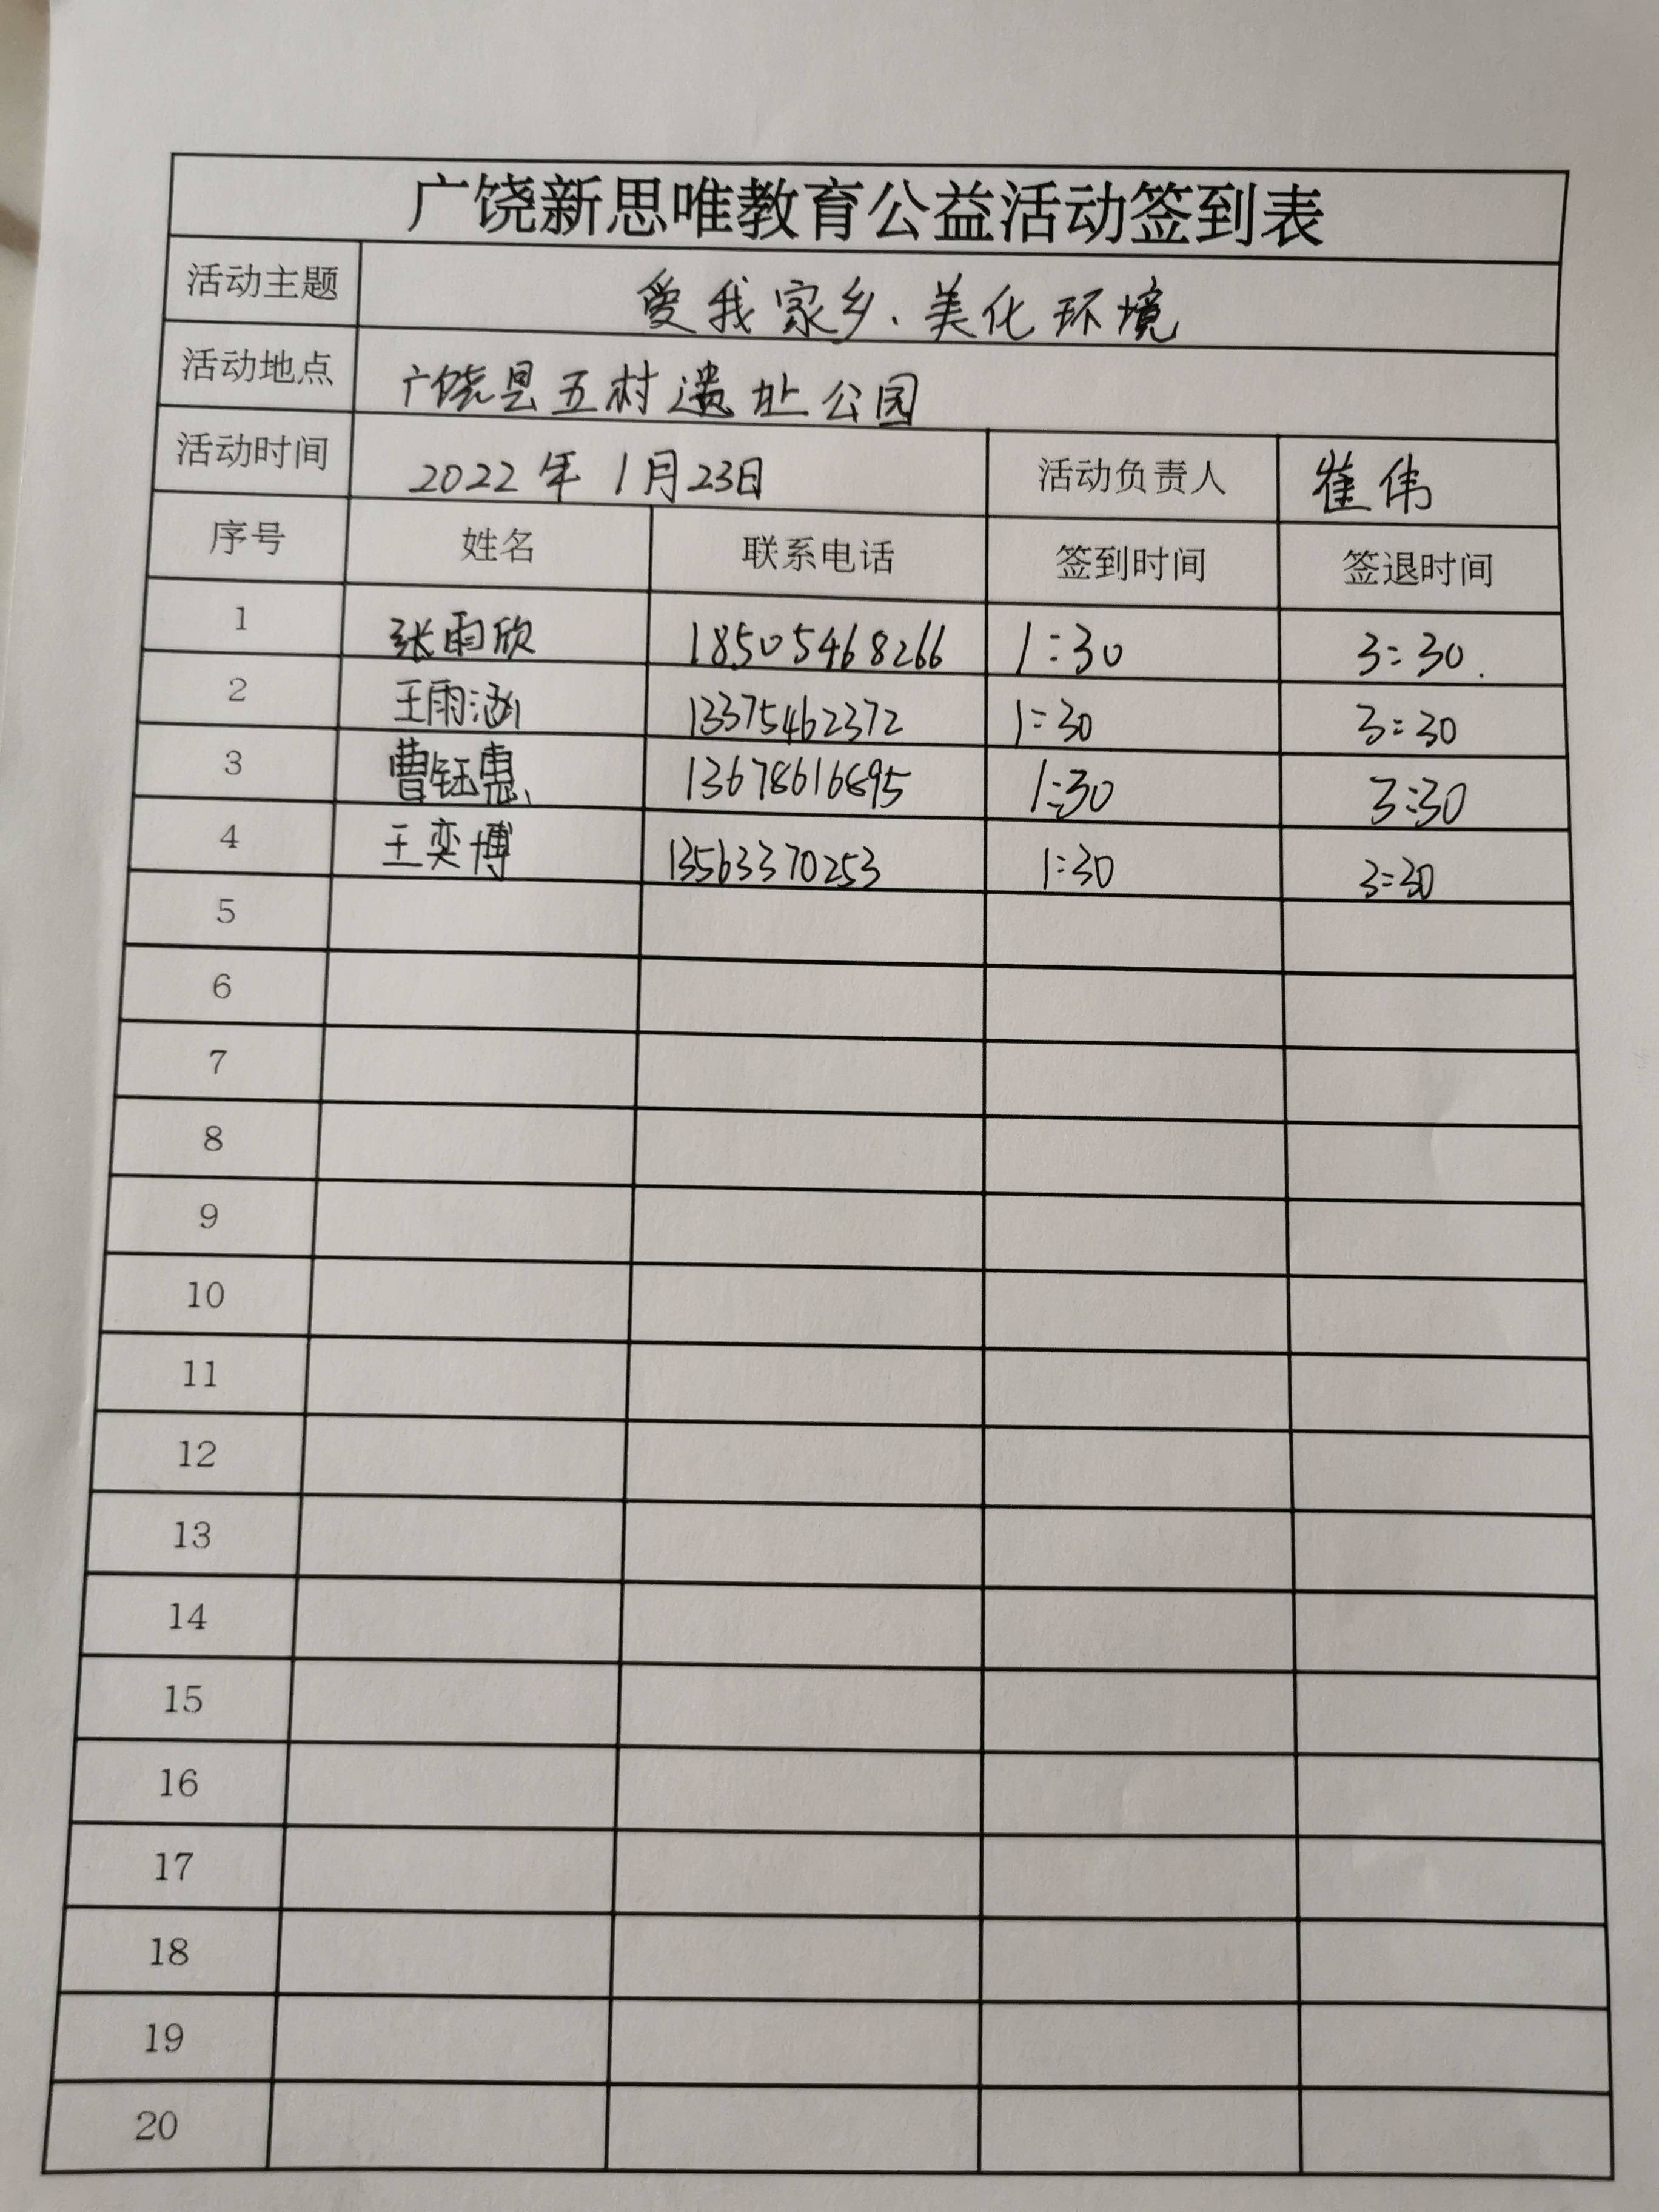 广饶新思唯教育公益活动签到表
活动主题 爱我家乡、美化环境
活动地点 广饶县五村遗址公园
活动时间 2022年1月23日 活动负责人 崔伟
序号 姓名 联系电话 签到时间 签退时间
1 张雨欣 18505468266 1:30 3:30.
2 王雨涵 13375462372 1:30 3:30
3 曹钰惠 13678616895 1:30 3:30
4 王奕博 13563370253 1:30 3:30
5
6
7
8
9
10
11
12
13
14
15
16
17
18
19
20